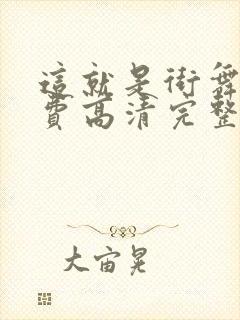 這就是街舞
費高清完整
大宙晃